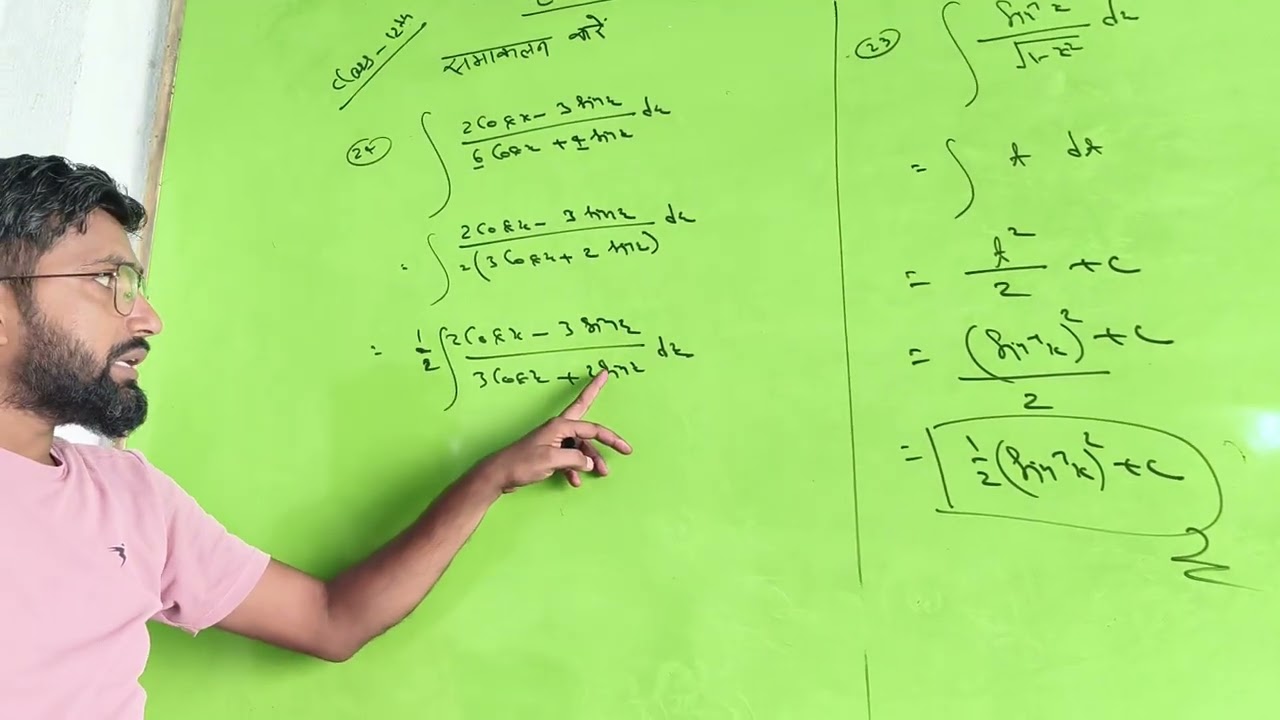 Class-12th
समाकलन करें
(24) ∫ (2Cosx - 3 sinx)/(6 Cosx + 4 sinx) dx
= ∫ (2Cosx - 3 sinx)/(2(3Cosx + 2 sinx)) dx
= 1/2 ∫ (2Cosx - 3 sinx)/(3Cosx + 2sinx) dx
(23) ∫ (sin⁻¹x)/(√1-x²) dx
= ∫ t dt
= t²/2 + C
= (sin⁻¹x)²/2 + C
= 1/2 (sin⁻¹x)² + C